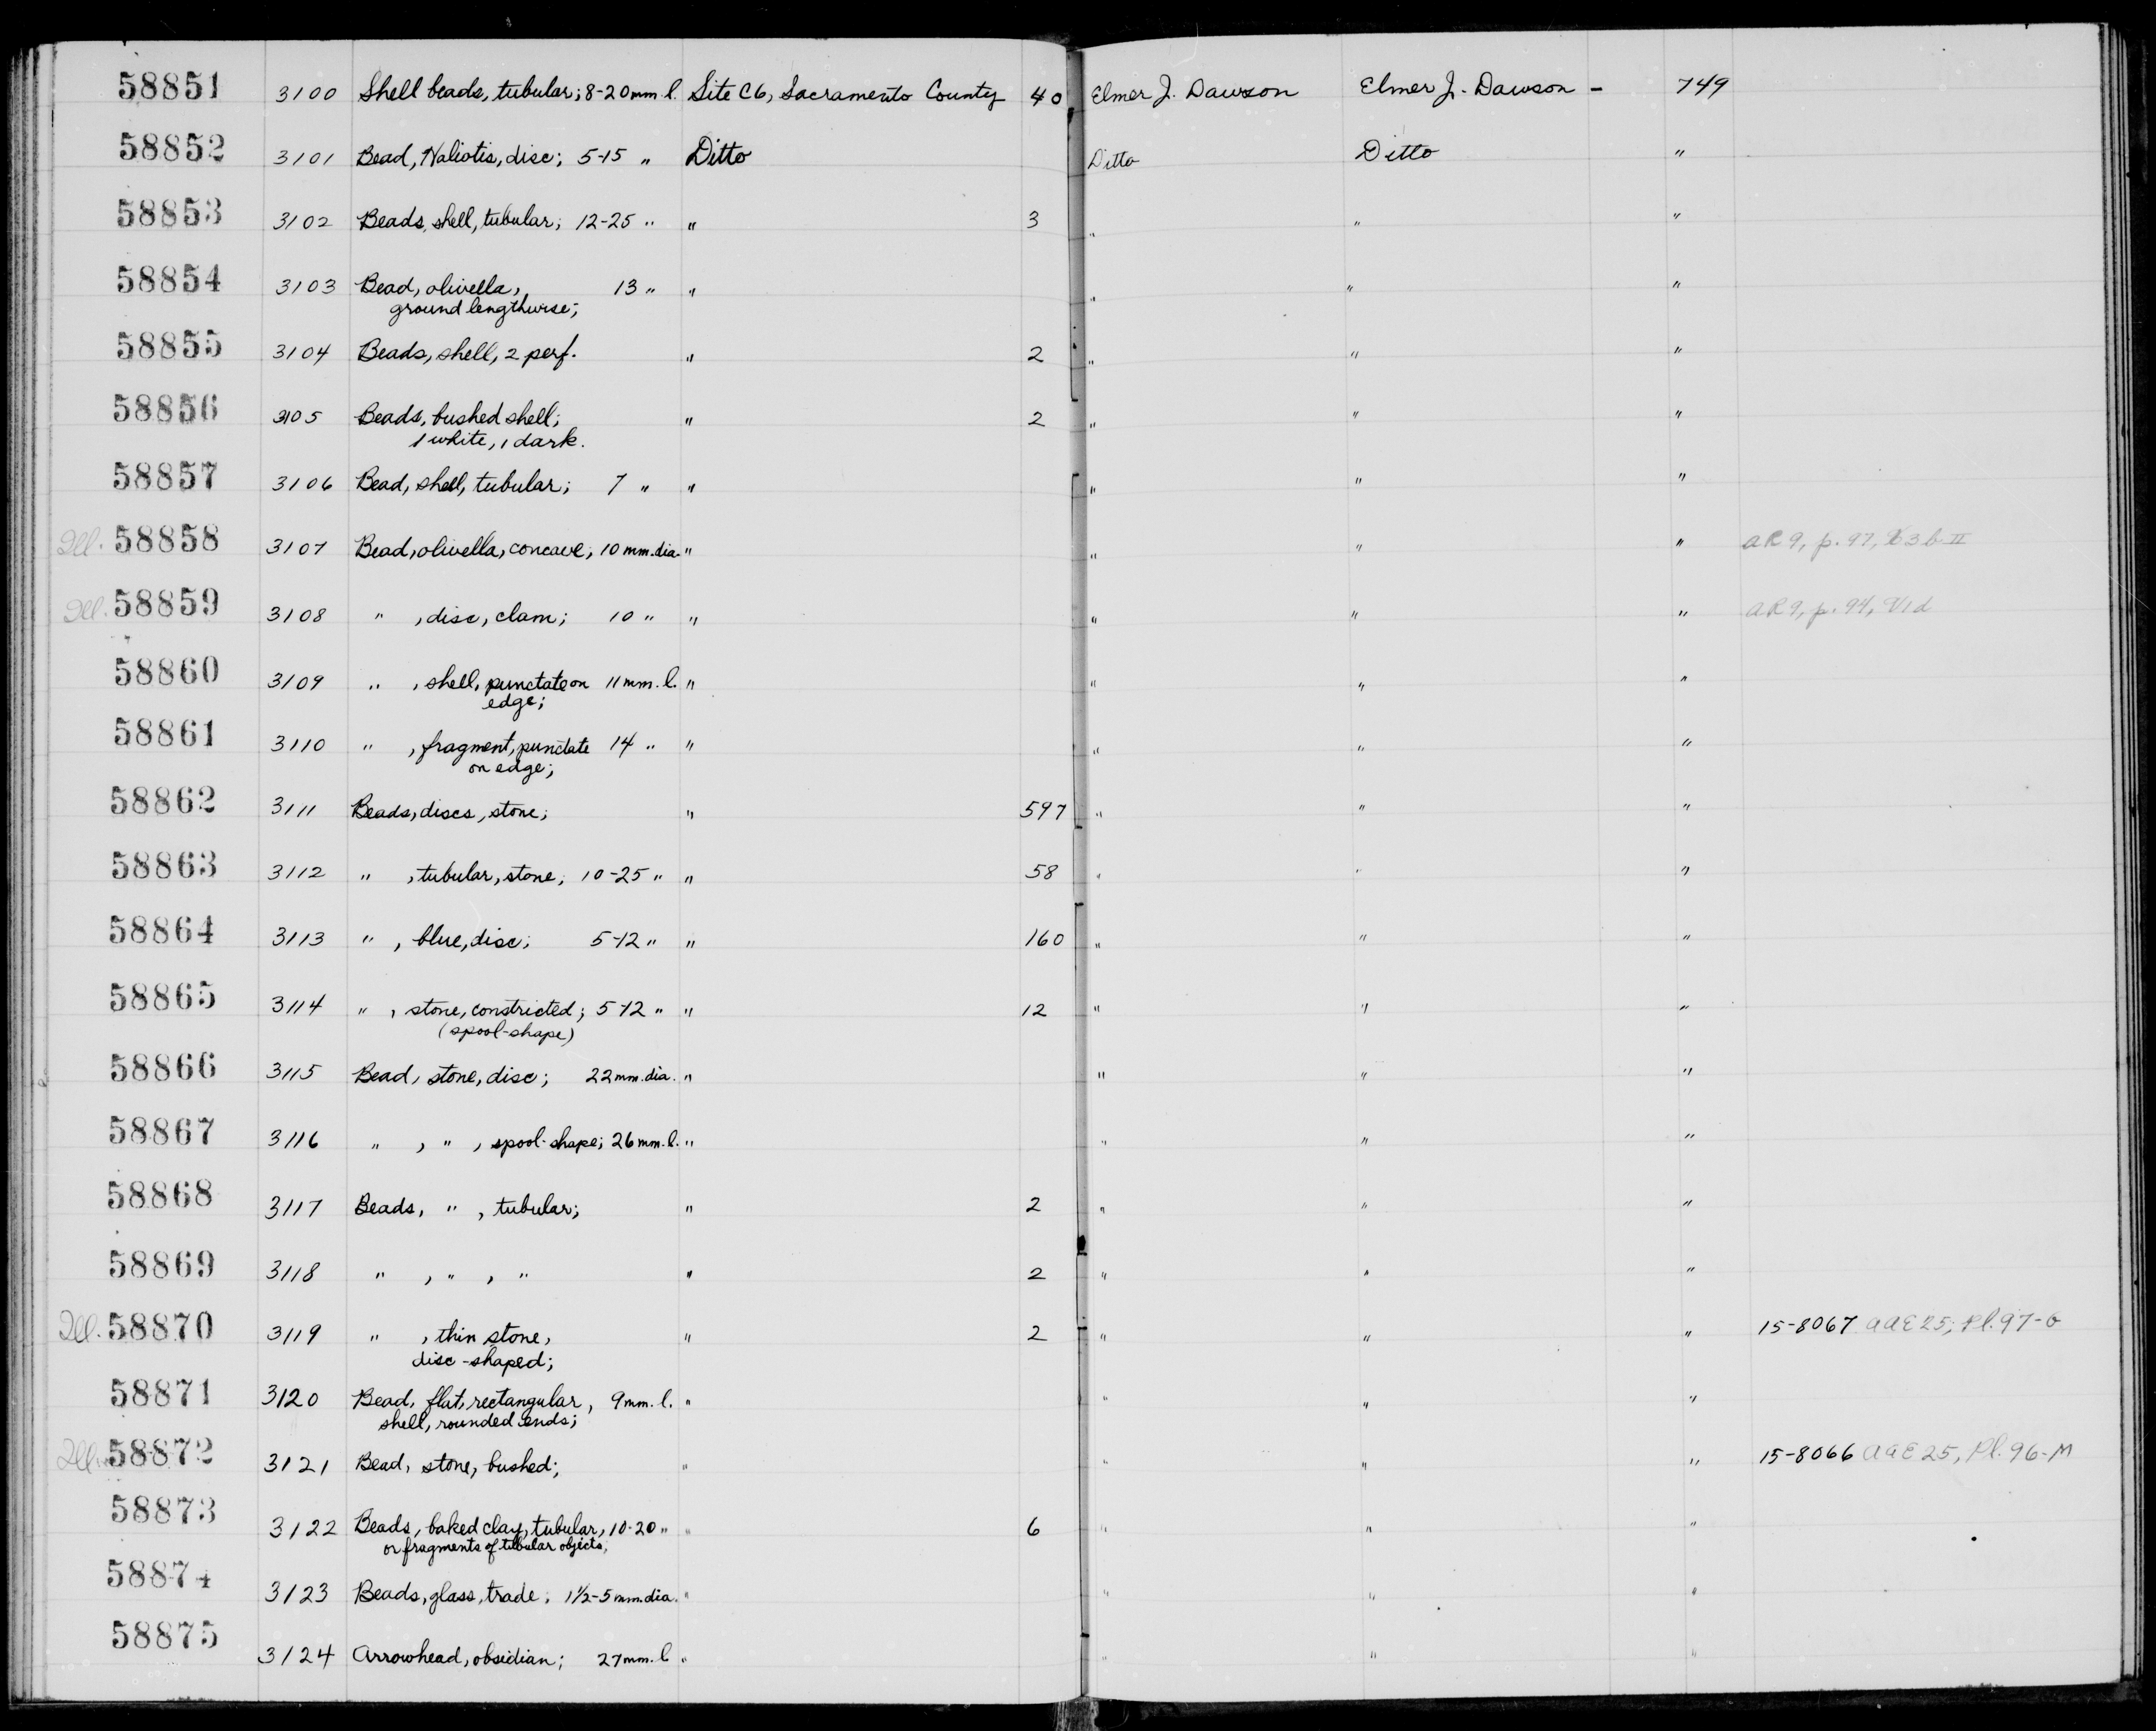 58851 3100 Shell beads, tubular; 8-20mm. l. Site C6, Sacramento County 40 Elmer J. Dawson Elmer J. Dawson - 749
58852 3101 Bead, Haliotis, disc; 5-15 " Ditto Ditto Ditto "
58853 3102 Beads, shell, tubular; 12-25 " " 3 " " "
58854 3103 Bead, olivella, 13 " " " " "
ground lengthwise;
58855 3104 Beads, shell, 2 perf. " 2 " " "
58856 3105 Beads, bushed shell; " 2 " " "
1 white, 1 dark.
58857 3106 Bead, shell, tubular; 7 " " " " "
Ill. 58858 3107 Bead, olivella, concave; 10 mm. dia. " " " " AR 9, p. 97, X3b II
Ill. 58859 3108 " , disc, clam; 10 " " " " " AR 9, p. 94, V1d
58860 3109 " , shell, punctate on 11 mm. l. " " " "
edge;
58861 3110 " , fragment, punctate 14 " " " " "
on edge;
58862 3111 Beads, discs, stone; " 597 " " "
58863 3112 " , tubular, stone; 10-25 " " 58 " " "
58864 3113 " , blue, disc; 5-12 " " 160 " " "
58865 3114 " , stone, constricted; 5-12 " " 12 " " "
(spool-shape)
58866 3115 Bead, stone, disc; 22 mm. dia. " " " "
58867 3116 " , " , spool-shape; 26 mm. l. " " " "
58868 3117 Beads, " , tubular; " 2 " " "
58869 3118 " , " , " " 2 " " "
Ill. 58870 3119 " , thin stone, " 2 " " " 15-8067 AAE 25, Pl. 97-G
disc-shaped;
58871 3120 Bead, flat, rectangular, 9mm. l. " " " "
shell, rounded ends;
Ill. 58872 3121 Bead, stone, bushed; " " " " 15-8066 AAE 25, Pl. 96-M
58873 3122 Beads, baked clay, tubular, 10-20 " " 6 " " "
or fragments of tubular objects;
58874 3123 Beads, glass, trade; 1½-5 mm. dia. " " " "
58875 3124 Arrowhead, obsidian; 27 mm. l " " " "